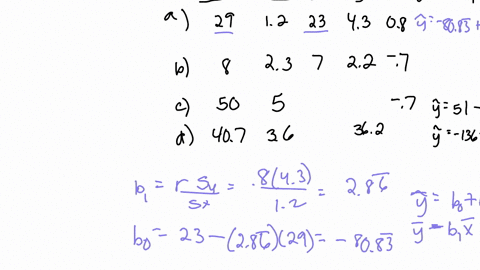 a) 29 1.2 23 4.3 0.8 ŷ=-80.83+
b) 8 2.3 7 2.2 -.7
c) 50 5 -.7 ŷ=51-
d) 40.7 3.6 36.2 ŷ=-136
b₁ = r Sy/Sx = .8(4.3)/1.2 = 2.86̅ ŷ = b₀+
b₀ = 23-(2.86̅)(29) = -80.83̅ y̅ - b₁x̅